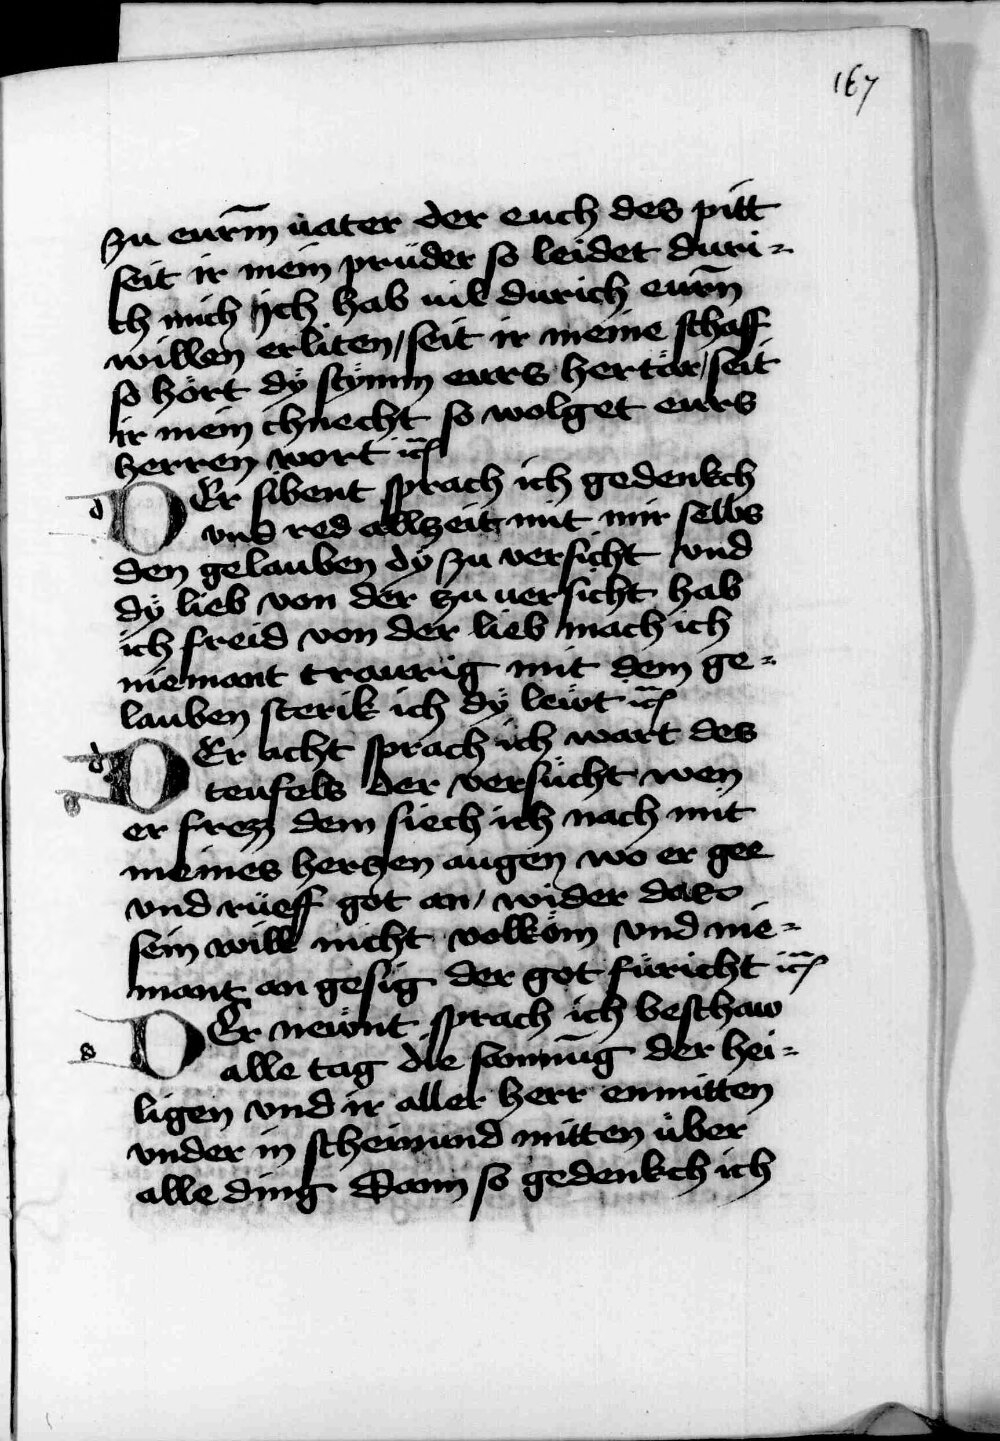 167
zu eurm̄ uater der euch des pitt
seit ir mein prüder so leidet duri=
ch mich / jch hab uil durich eurn̄
willen erliten / seit ir meine schaff
so hört dÿ stÿmm eurs hertär / seit
ir mein chnecht so wolget eurs
herren wort ic̄
d DEr sibent sprach ich gedenkch
vnd red allzeit mit mir selbs
den gelauben dÿ zu versicht vnd
dÿ lieb von der zu uersicht hab
ich freid von der lieb mach ich
niemant traurig mit dem ge=
lauben sterik ich dÿ lewt ic̄
d DEr acht sprach ich wart des
teufels der versücht wen
er frez dem siech ich nach mit
meines herzen augen wo er gee
vnd rüeff got an / wider das
sein will nicht volköm vnd nie=
mant an gesig der got füricht ic̄
DEr newnt sprach ich beschaw
alle tag die samnūg der hei=
ligen vnd ir aller herr enmitten
vnder in scheinund mitten über
alle ding Daom so gedenkch ich